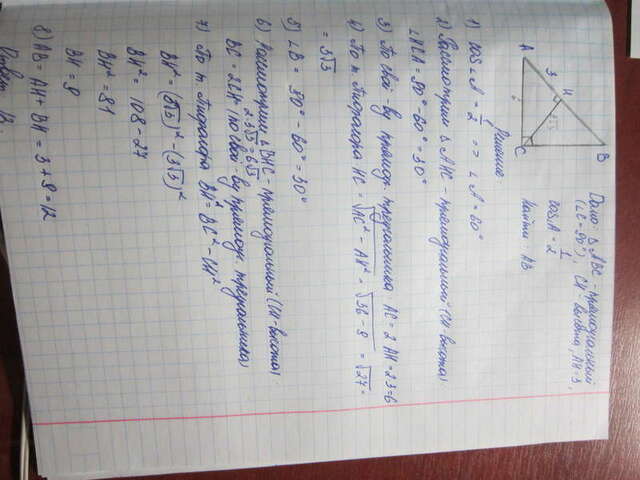 Дано: Δ ABC - прямоугольный
(∠C = 90°), CH - высота, AH = 3,
cos A = 1/2
Найти: AB
A
3
H
B
C
Решение:
1) cos ∠A = 1/2 => ∠A = 60°
2) Рассмотрим Δ AHC - прямоугольный (CH - высота)
∠HCA = 90° - 60° = 30°
3) По св-ву прямоуг. треугольника AC = 2 AH = 2·3 = 6
4) По т. Пифагора HC = √AC² - AH² = √36 - 9 = √27 =
= 3√3
5) ∠B = 90° - 60° = 30°
6) Рассмотрим Δ BHC - прямоугольный (CH - высота)
BC = 2CH (по св-ву прямоуг. треугольника)
2·3√3 = 6√3
7) По т. Пифагора BH² = BC² - CH²
BH² = (6√3)² - (3√3)²
BH² = 108 - 27
BH² = 81
BH = 9
8) AB = AH + BH = 3 + 9 = 12
Ответ: 12.